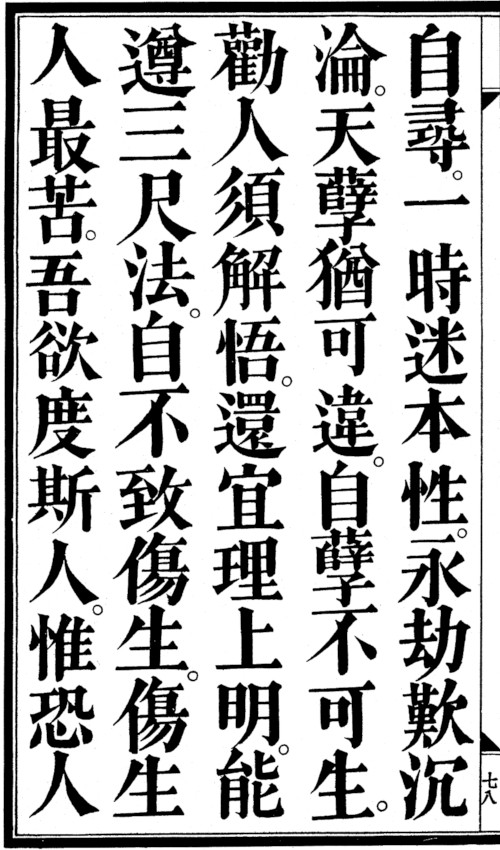 自尋。一時迷本性。永劫歎沉
淪。天孽猶可違。自孽不可生。
勸人須解悟。還宜理上明。能
遵三尺法。自不致傷生。傷生
人最苦。吾欲度斯人。惟恐人
七八